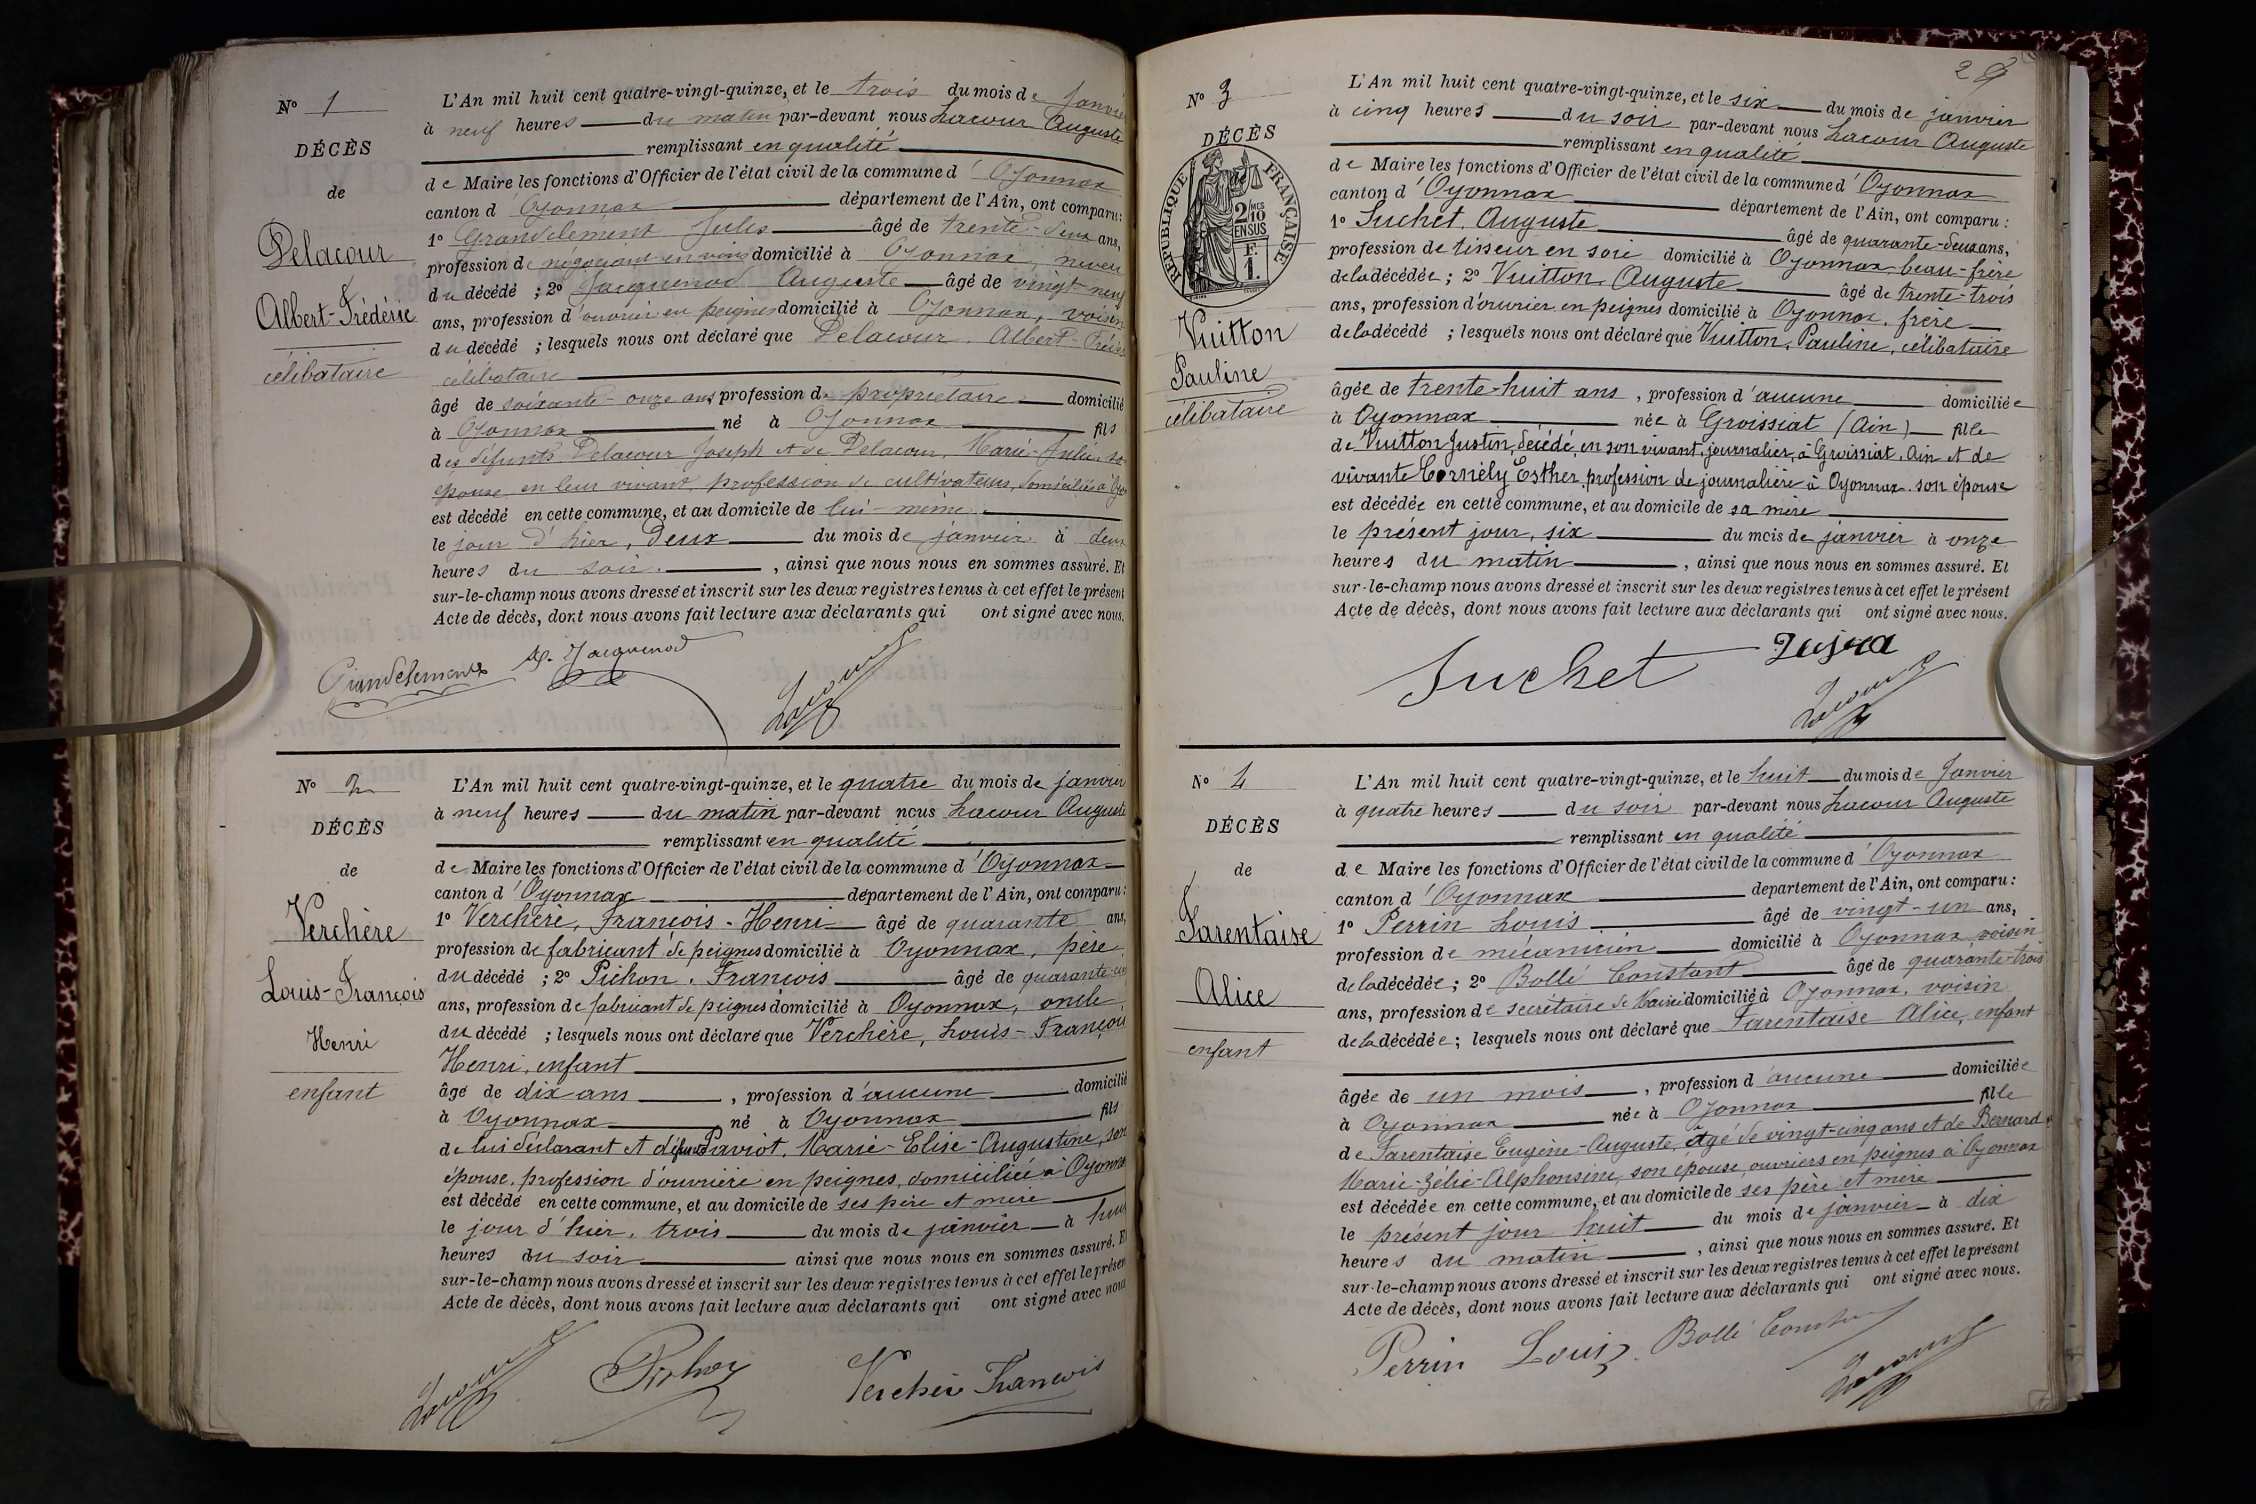 N° 1
DÉCÈS
de
Delacour
Albert-Frédéric
célibataire
L'An mil huit cent quatre-vingt-quinze, et le trois du mois de Janvier
à neuf heures du matin par-devant nous Lacour Auguste
remplissant en qualité
de Maire les fonctions d'Officier de l'état civil de la commune d'Oyonnax
canton d'Oyonnax département de l'Ain, ont comparu:
1° Grandclement Jules âgé de trente-deux ans,
profession de négociant en vins domicilié à Oyonnax, neveu
du décédé ; 2° Jacquenod Auguste âgé de vingt neuf
ans, profession d'ouvrier en peignes domicilié à Oyonnax, voisin
du décédé ; lesquels nous ont déclaré que Delacour, Albert-Fréd
célibataire
âgé de soixante-onze ans, profession de propriétaire domicilié
à Oyonnax né à Oyonnax fils
des défunts Delacour Joseph et de Delacour, Marie-Julie, sa
épouse en leur vivant, profession de cultivateurs, domiciliés à Oyon
est décédé en cette commune, et au domicile de lui-même
le jour d'hier, deux du mois de janvier à deux
heures du soir, ainsi que nous nous en sommes assuré. Et
sur-le-champ nous avons dressé et inscrit sur les deux registres tenus à cet effet le présent
Acte de décès, dont nous avons fait lecture aux déclarants qui ont signé avec nous.
Grandclement A. Jacquenod Lacour
N° 2
DÉCÈS
de
Verchère
Louis-François
Henri
enfant
L'An mil huit cent quatre-vingt-quinze, et le quatre du mois de janvier
à neuf heures du matin par-devant nous Lacour Auguste
remplissant en qualité
de Maire les fonctions d'Officier de l'état civil de la commune d'Oyonnax
canton d'Oyonnax département de l'Ain, ont comparu:
1° Verchère, François-Henri âgé de quarante ans,
profession de fabricant de peignes domicilié à Oyonnax, père
du décédé ; 2° Pichon, François âgé de quarante-cinq
ans, profession de fabricant de peignes domicilié à Oyonnax, oncle
du décédé ; lesquels nous ont déclaré que Verchère, Louis-François
Henri, enfant
âgé de dix ans, profession d'aucune domicilié
à Oyonnax né à Oyonnax fils
de lui déclarant et défunte Paviot, Marie-Elise-Augustine, son
épouse, profession d'ouvrière en peignes, domiciliée à Oyonnax
est décédé en cette commune, et au domicile de ses père et mère
le jour d'hier, trois du mois de janvier à huit
heures du soir ainsi que nous nous en sommes assuré. Et
sur-le-champ nous avons dressé et inscrit sur les deux registres tenus à cet effet le présent
Acte de décès, dont nous avons fait lecture aux déclarants qui ont signé avec nous
Lacour Pichon Verchère François
2
N° 3
DÉCÈS
RÉPUBLIQUE FRANÇAISE
2/10 MES
EN SUS
F.
1.
Vuitton
Pauline
célibataire
L'An mil huit cent quatre-vingt-quinze, et le six du mois de janvier
à cinq heures du soir par-devant nous Lacour Auguste
remplissant en qualité
de Maire les fonctions d'Officier de l'état civil de la commune d'Oyonnax
canton d'Oyonnax département de l'Ain, ont comparu:
1° Suchet, Auguste âgé de quarante-deux ans,
profession de tisseur en soie domicilié à Oyonnax beau-frère
de la décédée ; 2° Vuitton, Auguste âgé de trente-trois
ans, profession d'ouvrier en peignes domicilié à Oyonnax, frère
de la décédé ; lesquels nous ont déclaré que Vuitton, Pauline, célibataire
âgée de trente-huit ans, profession d'aucune domiciliée
à Oyonnax née à Groissiat (Ain) fille
de Vuitton Justin, décédé, en son vivant, journalier, à Groissiat, Ain et de
vivante Cornély Esther, profession de journalière à Oyonnax, son épouse
est décédée en cette commune, et au domicile de sa mère
le présent jour, six du mois de janvier à onze
heures du matin, ainsi que nous nous en sommes assuré. Et
sur-le-champ nous avons dressé et inscrit sur les deux registres tenus à cet effet le présent
Acte de décès, dont nous avons fait lecture aux déclarants qui ont signé avec nous.
Suchet Lacour
N° 4
DÉCÈS
de
Tarentaise
Alice
enfant
L'An mil huit cent quatre-vingt-quinze, et le huit du mois de Janvier
à quatre heures du soir par-devant nous Lacour Auguste
remplissant en qualité
de Maire les fonctions d'Officier de l'état civil de la commune d'Oyonnax
canton d'Oyonnax département de l'Ain, ont comparu:
1° Perrin Louis âgé de vingt-un ans,
profession de mécanicien domicilié à Oyonnax voisin
de la décédée ; 2° Bollé Constant âgé de quarante-trois
ans, profession de secrétaire de Mairie domicilié à Oyonnax, voisin
de la décédée ; lesquels nous ont déclaré que Tarentaise Alice, enfant
âgée de un mois, profession d'aucune domiciliée
à Oyonnax née à Oyonnax fille
de Tarentaise Eugène-Auguste, âgé de vingt-cinq ans et de Bernard
Marie-Zélie-Alphonsine, son épouse, ouvriers en peignes à Oyonnax
est décédée en cette commune, et au domicile de ses père et mère
le présent jour huit du mois de janvier à dix
heures du matin, ainsi que nous nous en sommes assuré. Et
sur-le-champ nous avons dressé et inscrit sur les deux registres tenus à cet effet le présent
Acte de décès, dont nous avons fait lecture aux déclarants qui ont signé avec nous.
Perrin Louis Bollé Constant Lacour